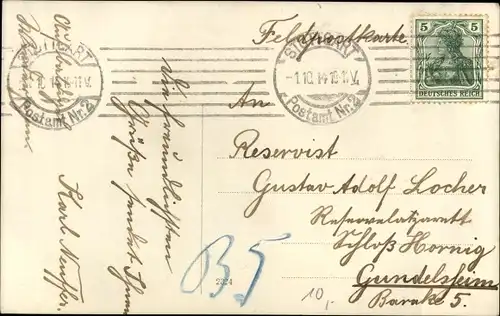 Feldpostkarte.
STUTTGART
-1.10.14 10-11V.
Postamt Nr. 2
STUTTGART
1.10.14 10-11V.
Postamt Nr. 2
5 5
DEUTSCHES REICH
An
Reservist
Gustav Adolf Locher
Reservelazarett
Schloß Hornig
Gundelsheim
Barake 5.
Die freundlichsten
Grüße sendet Ihnen
Karl Neuffer.
B5
2324
10,-